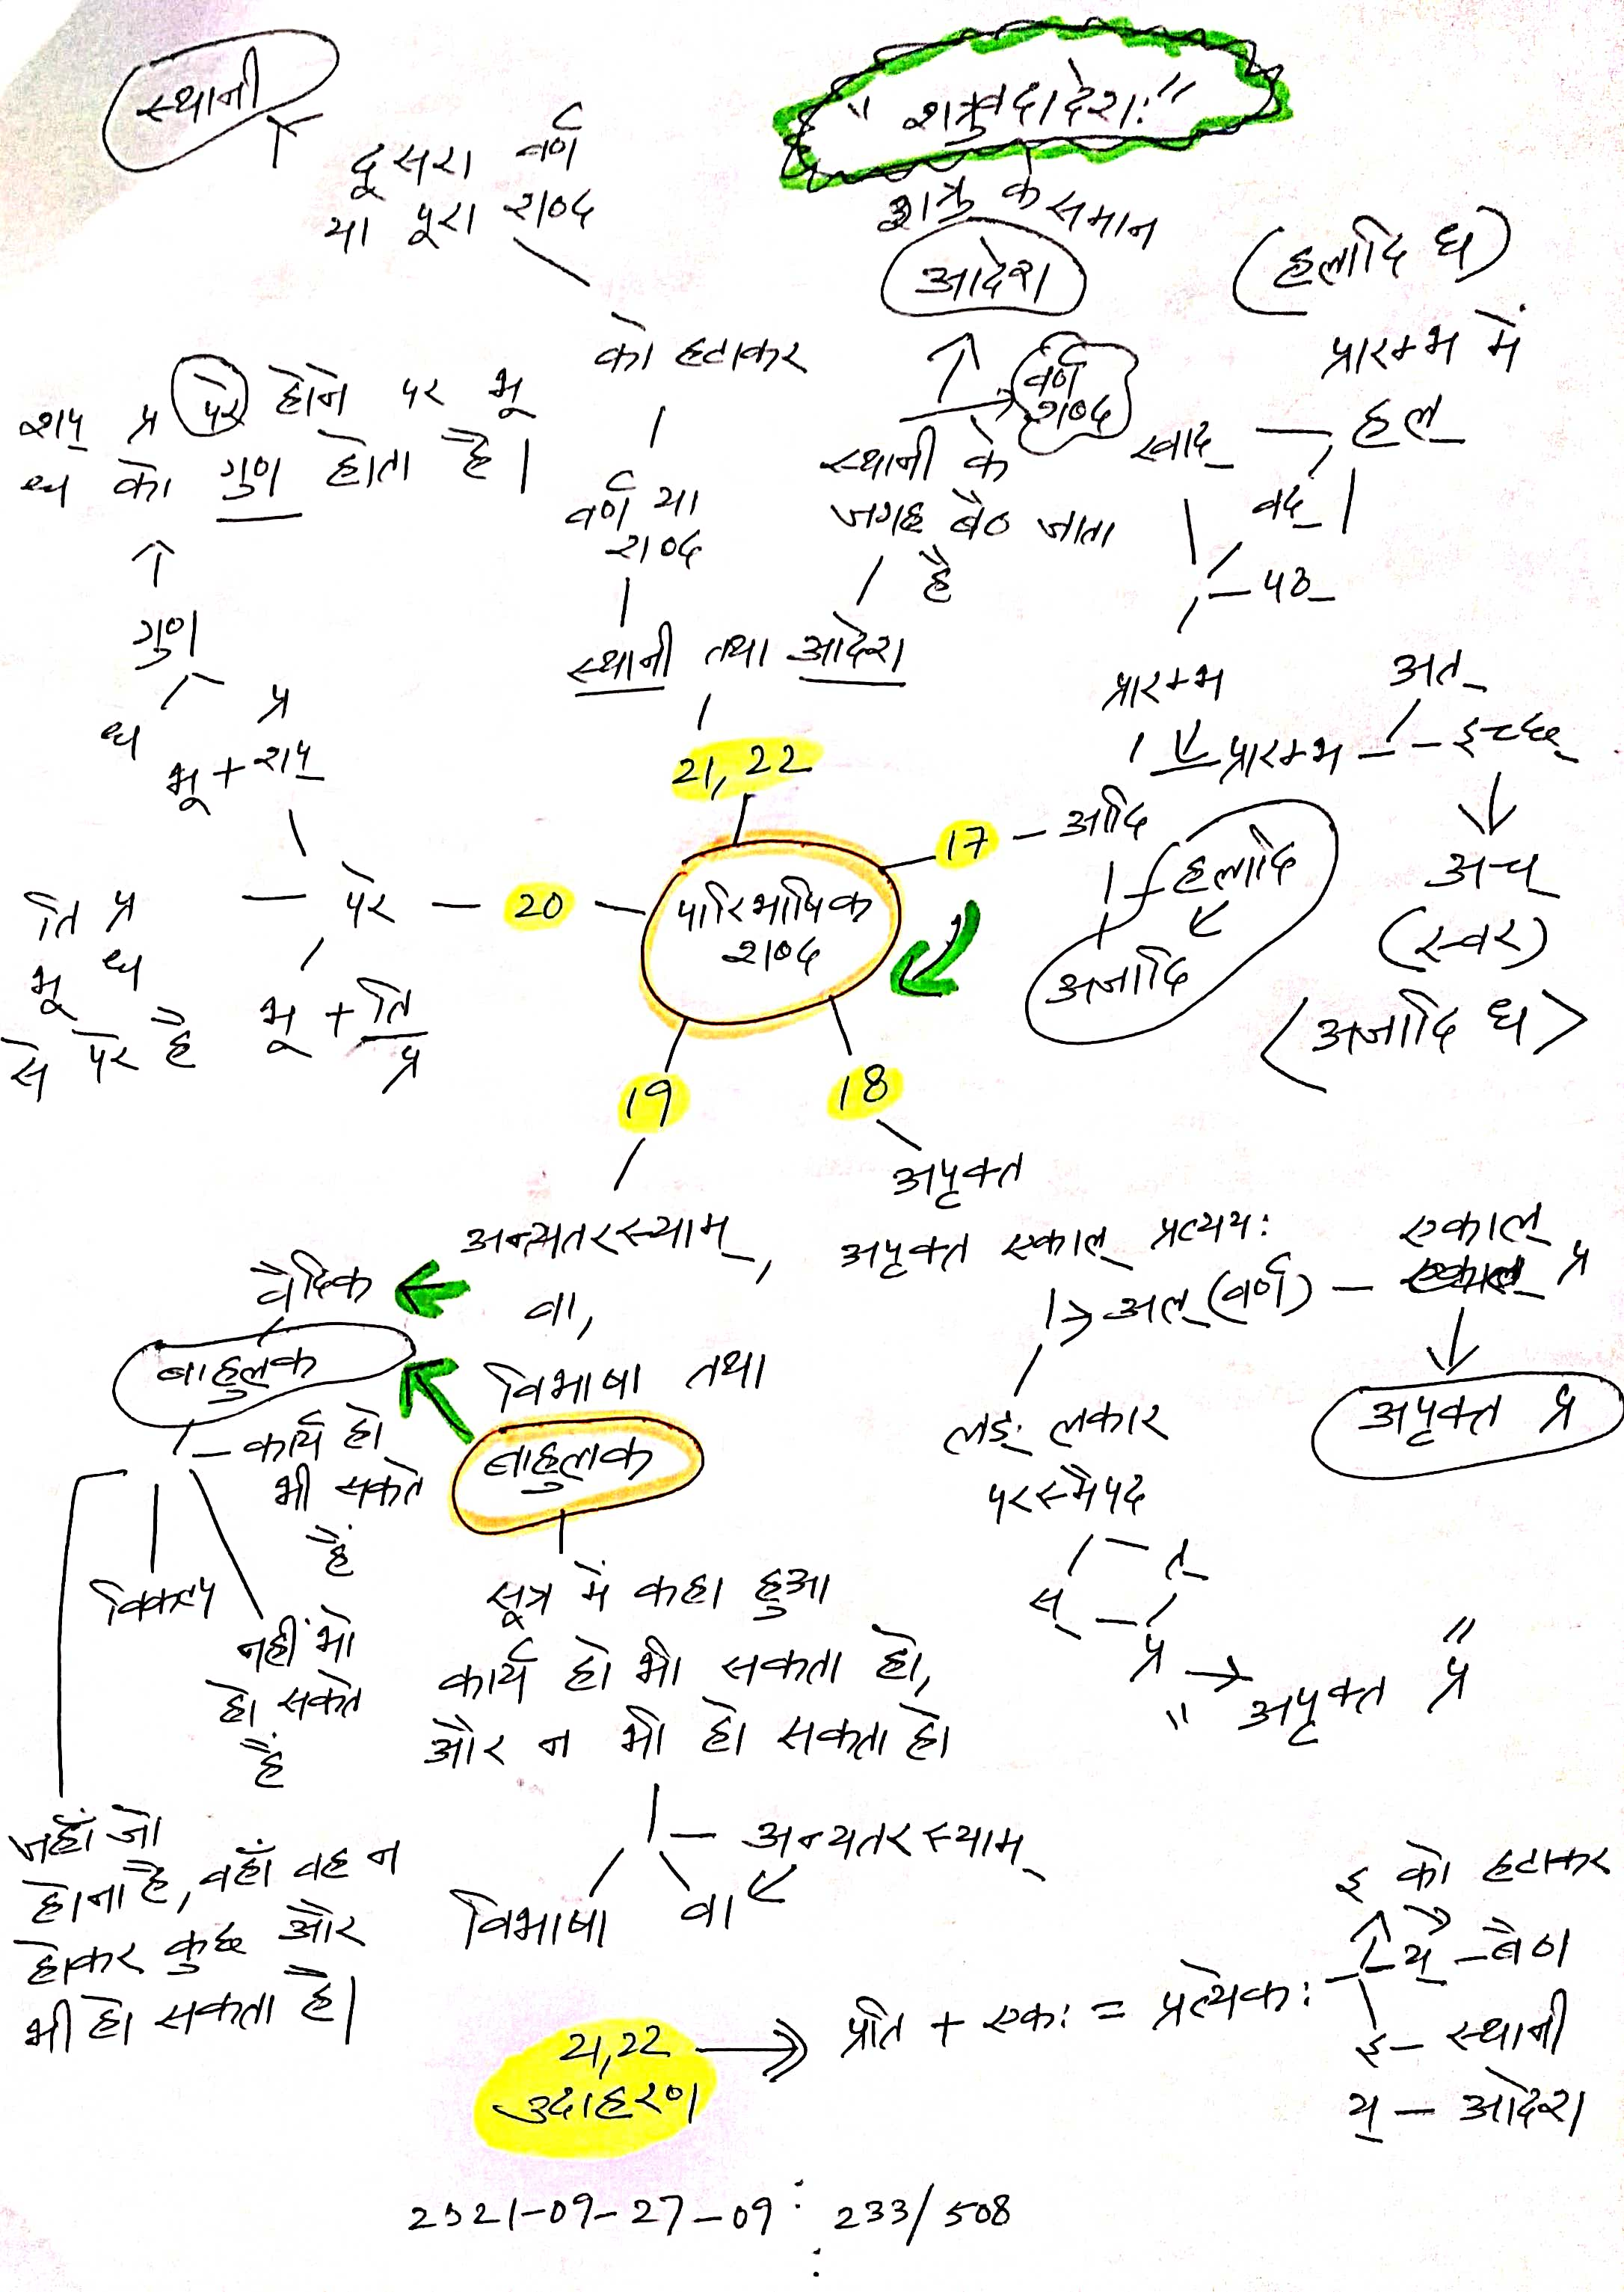 स्थानी
दूसरा वर्ण
या पूरा शब्द
को हटाकर
वर्ण या
शब्द
स्थानी तथा आदेश
21, 22
"शत्रुवदादेशः"
शत्रु के समान
आदेश
वर्ण
शब्द
स्थानी के
जगह बैठ जाता
है
(हलादि ध)
प्रारम्भ में
स्वाद् — हल्
वद्
पठ्
प्रारम्भ
प्रारम्भ
अत्
इच्छ्
अच्
(स्वर)
(अजादि ध)
17 — आदि
हलादि
अजादि
शप् प्र परे होने पर भू
ध को गुण होता है।
गुण
ध प्र
भू + शप्
ति प्र — परे — 20
भू ध
से परे है
भू + ति
प्र
पारिभाषिक
शब्द
19
18
अपृक्त
अपृक्त एकाल् प्रत्ययः
अल् (वर्ण) — एकाल् प्र
अपृक्त प्र
लङ् लकार
परस्मैपद
त्
स्
प्र
" अपृक्त प्र "
अन्यतरस्याम्,
वा,
विभाषा तथा
बाहुलक
वैदिक
बाहुलक
कार्य हो
भी सकते
हैं
विकल्प
नहीं भी
हो सकते
हैं
जहाँ जो
होना है, वहाँ वह न
होकर कुछ और
भी हो सकता है।
सूत्र में कहा हुआ
कार्य हो भी सकता हो,
और न भी हो सकता हो
अन्यतरस्याम्
विभाषा वा
21,22
उदाहरण
प्रति + एकः = प्रत्येकः
इ को हटाकर
य् — बैठा
इ — स्थानी
य् — आदेश
2021-09-27-09: 233/508